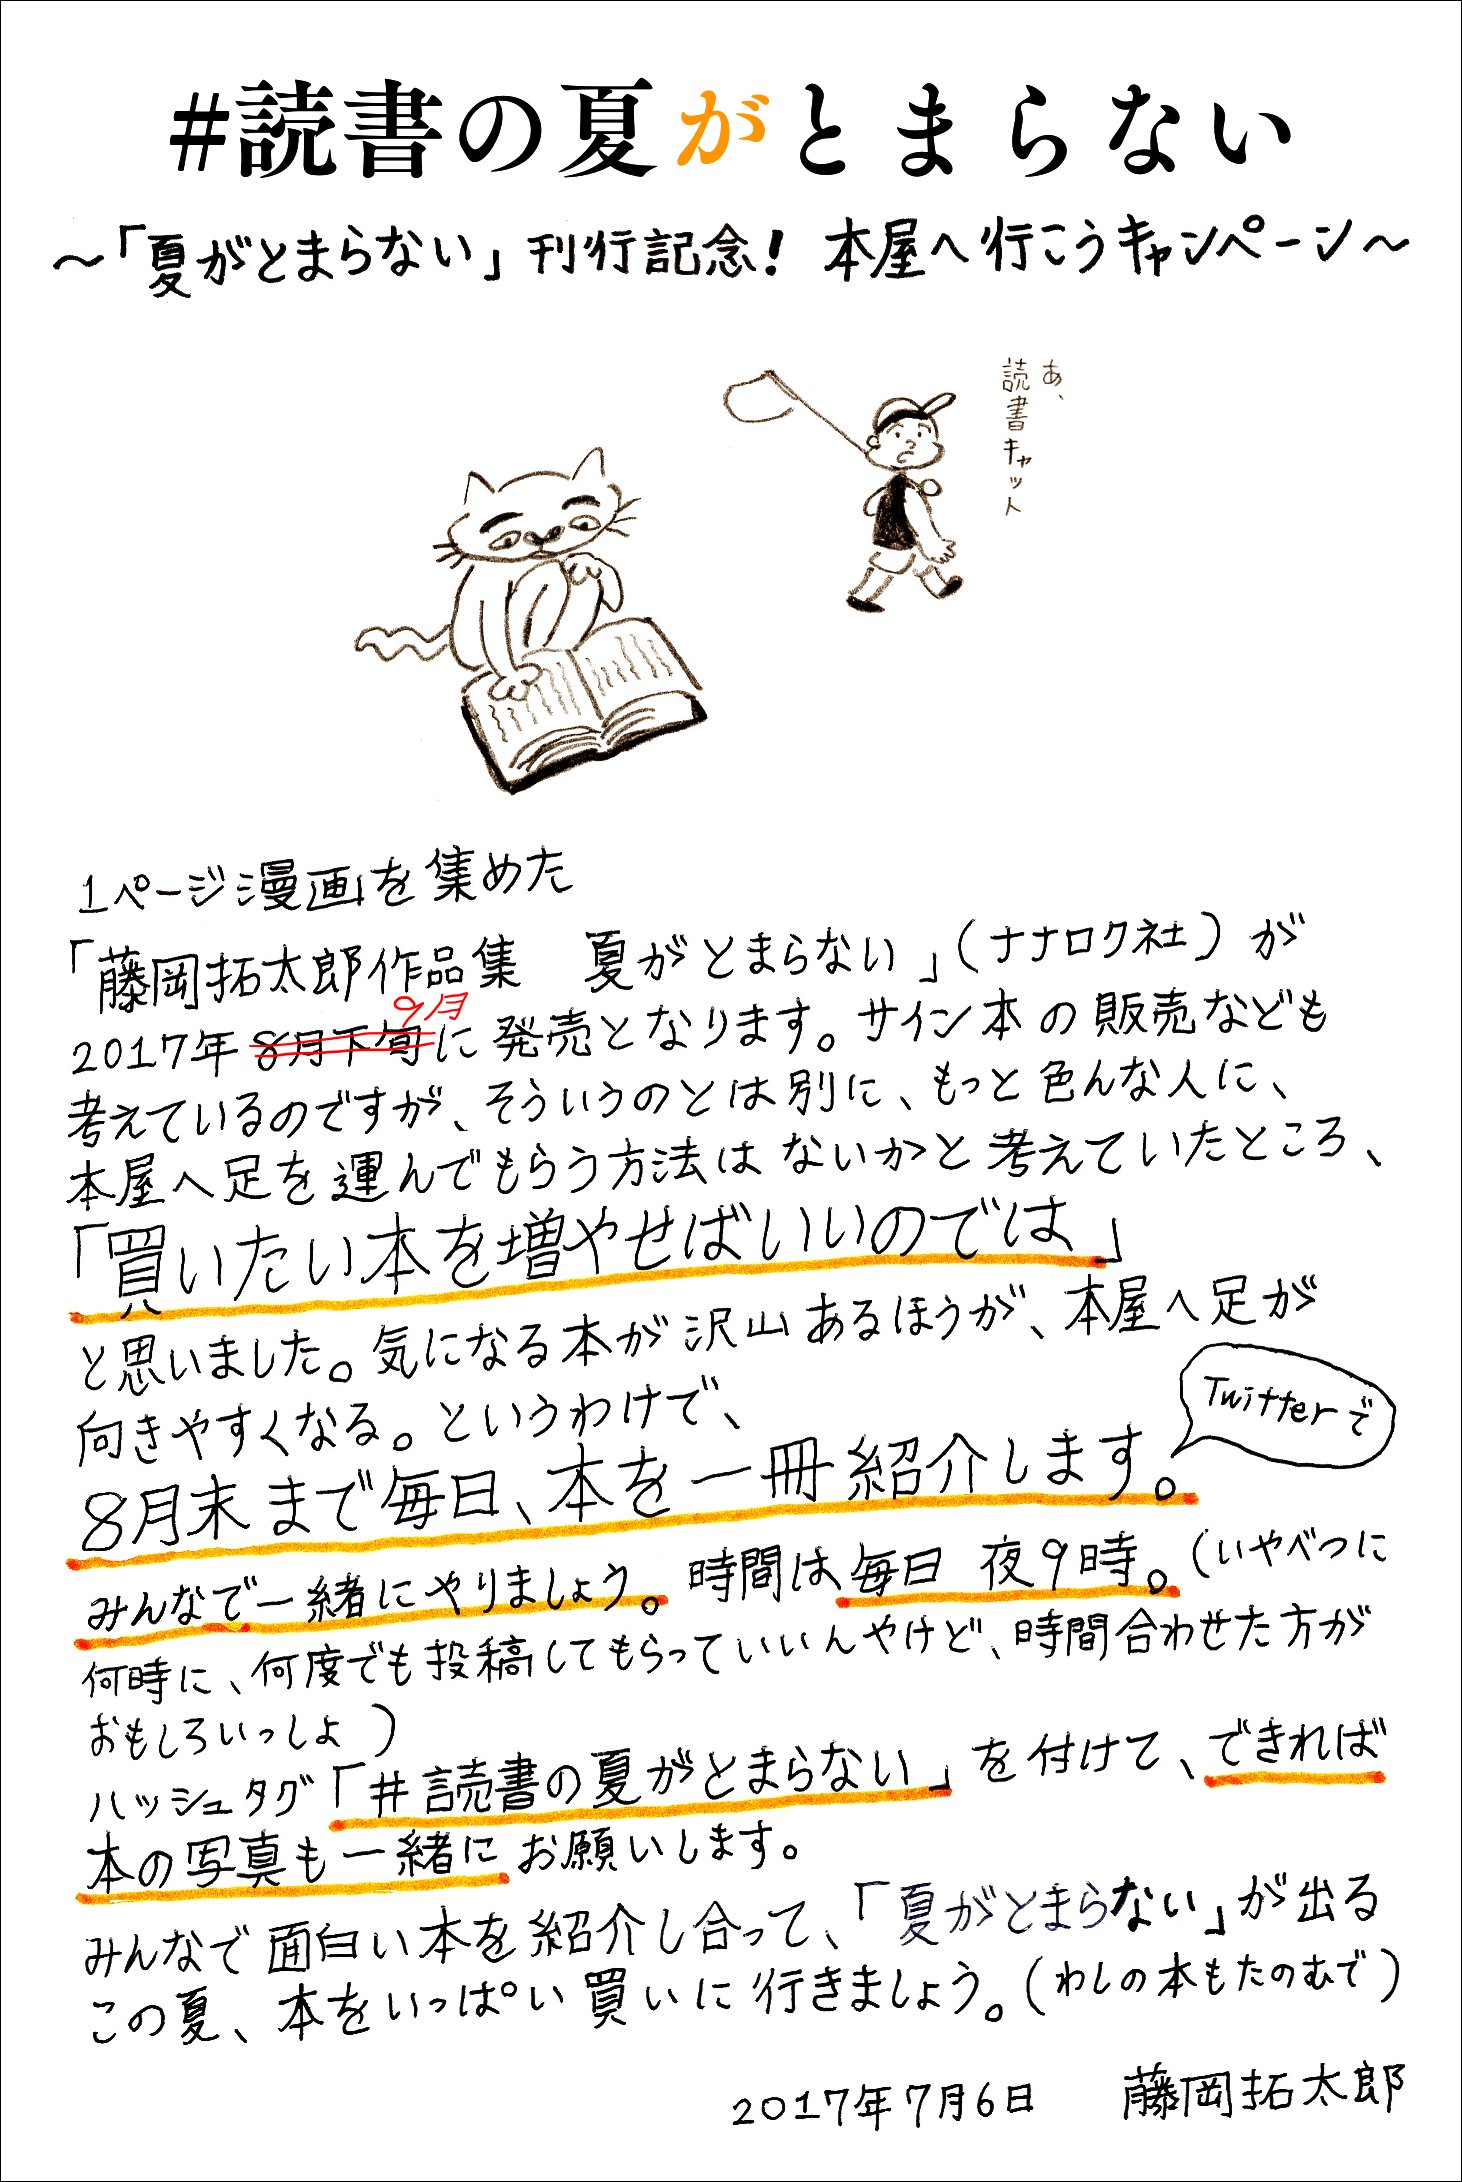 #読書の夏がとまらない
〜「夏がとまらない」刊行記念！ 本屋へ行こうキャンペーン〜
あ、
読書キャット
1ページ漫画を集めた
「藤岡拓太郎作品集　夏がとまらない」（ナナロク社）が
9月
2017年8月下旬に発売となります。サイン本の販売なども
考えているのですが、そういうのとは別に、もっと色んな人に、
本屋へ足を運んでもらう方法はないかと考えていたところ、
「買いたい本を増やせばいいのでは」
と思いました。気になる本が沢山あるほうが、本屋へ足が
向きやすくなる。というわけで、
Twitterで
8月末まで毎日、本を一冊紹介します。
みんなで一緒にやりましょう。時間は毎日 夜9時。（いやべつに
何時に、何度でも投稿してもらっていいんやけど、時間合わせた方が
おもしろいっしょ）
ハッシュタグ「#読書の夏がとまらない」を付けて、できれば
本の写真も一緒にお願いします。
みんなで面白い本を紹介し合って、「夏がとまらない」が出る
この夏、本をいっぱい買いに行きましょう。（わしの本もたのむで）
2017年7月6日　藤岡拓太郎